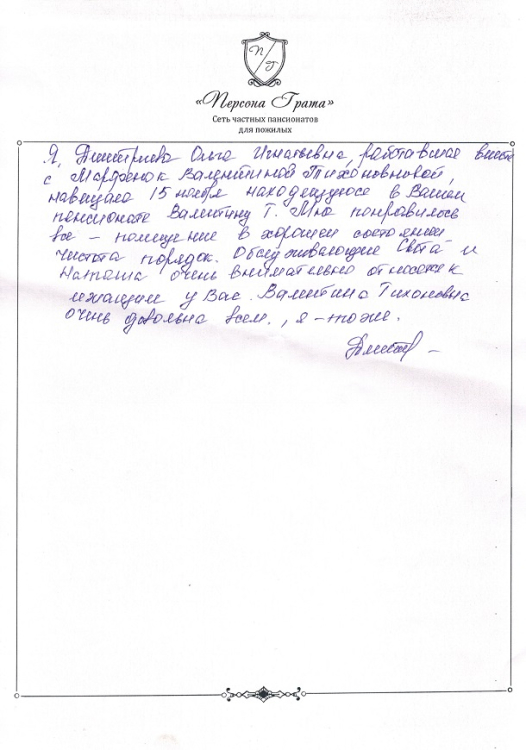 П
Г
«Персона Грата»
Сеть частных пансионатов
для пожилых
Я, Дмитриева Ольга Игнатьевна, работавшая вместе
с Марфенок Валентиной Тихоновной,
навещала 15 ноября находящуюся в Вашем
пенсионате Валентину Т. Мне понравилось
все – помещение в хорошем состоянии
чистота порядок. Обслуживающие Света и
Наташа очень внимательно относятся к
лежащим у Вас. Валентина Тихоновна
очень довольна всем., я – тоже.